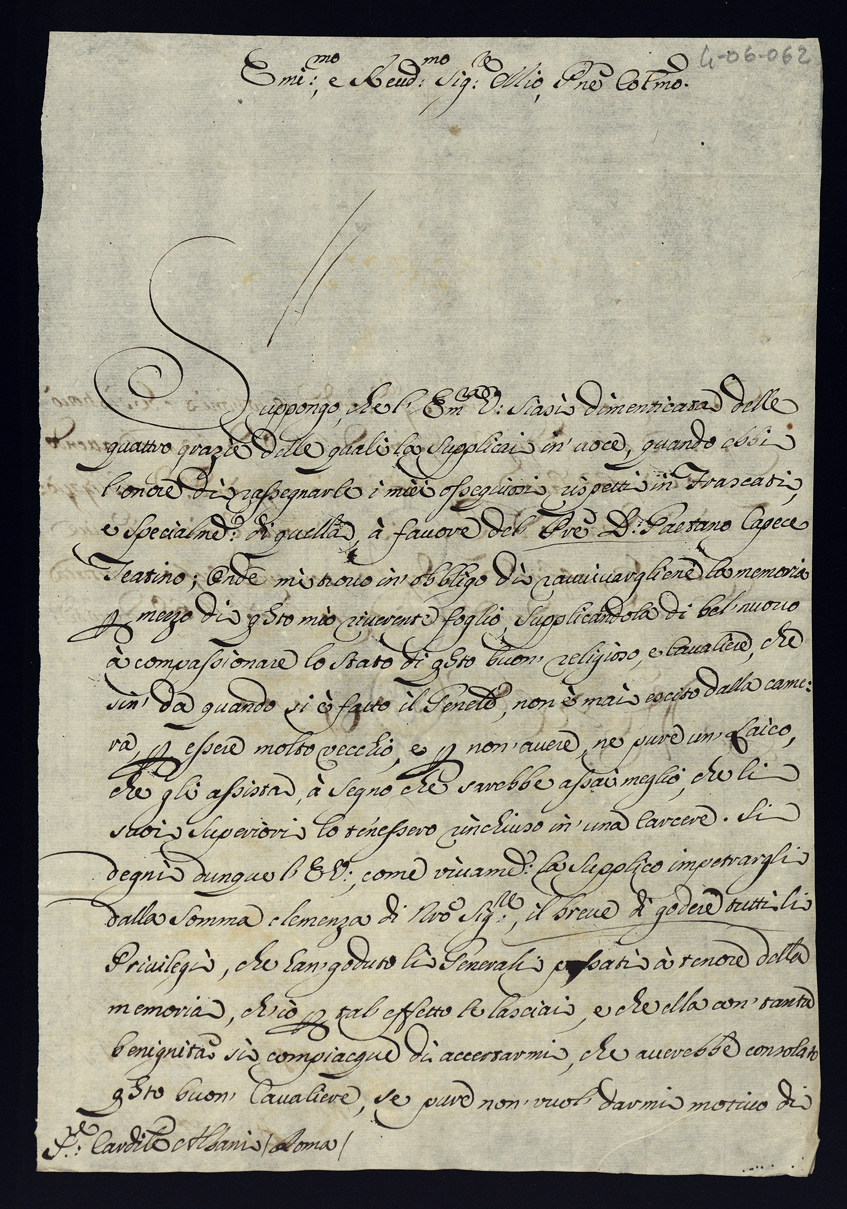 4-06-062
Emi:mo, e Reud:mo Sig:re Mio, Pne Colmo.
Suppongo, che l'Em:za V: siasi dimenticata delle
quattro grazie delle quali la supplicai in' uoce, quando ebbi
l'onore di rassegnarle i miei ossequiosi rispetti in Frascati,
e specialme:, di quella, à fauore del Pre D: Gaetano Capece
Teatino; Onde mi trouo in' obbligo di rauuiuargliene la memoria
p mezzo di qsto mio riuerente foglio, supplicandola di bel' nuouo
à compassionare lo stato di qsto buon' religioso, e Caualiere, che
sin' da quando si è fatto il Genele, non è mai escito dalla came:
ra, p essere molto vecchio, e p non' auere, ne pure un' Laico,
che gli assista, à segno che sarebbe assai meglio, che li
suoi superiori lo tenessero rinchiuso in' una Carcere. Si
degni dunque l'E V:, come viuame: la supplico impetrargli
dalla somma clemenza di Nro Sig:re, il breue di godere tutti li
Priuilegi, che han' goduto li Generali passati à tenore della
memoria, ch'io p tal' effetto le lasciai, e che ella con' tanta
benignità si compiacque di accertarmi, che auerebbe consolato
qsto buon' Caualiere, se pure non' vuol' darmi motiuo di
Sre: Cardile Albani / Roma /